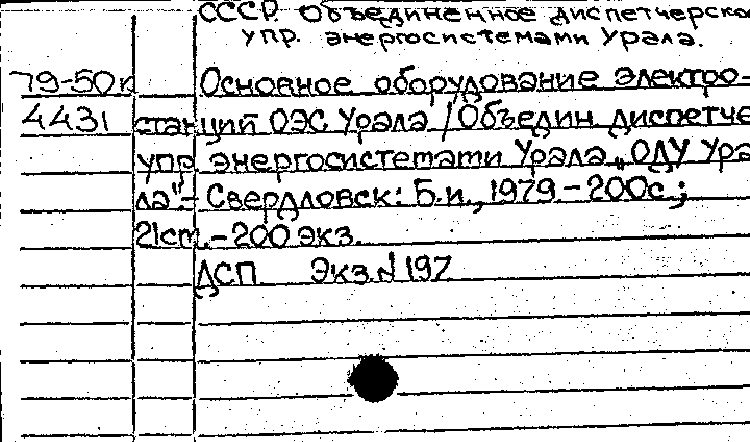 СССР. Объединенное диспетчерско
упр. энергосистемами Урала.
79-50к Основное оборудование электро-
4431 станций ОЭС Урала / Объедин. диспетче
упр. энергосистемами Урала „ОДУ Ура
ла". - Свердловск: Б.и., 1979. - 200с.;
21см. - 200 экз.
ДСП Экз.№197